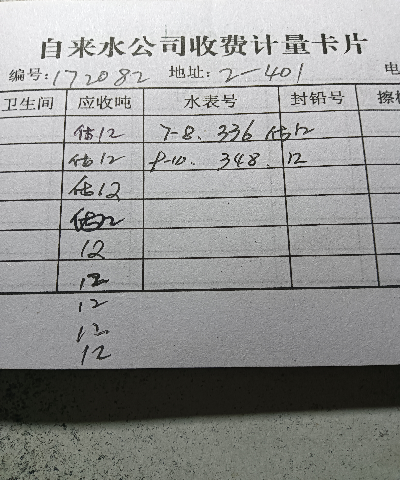 自来水公司收费计量卡片
编号:172082 地址:2-401 电
卫生间 应收吨 水表号 封铅号 擦
估12 7-8. 336 估12
估12 9-10. 348. 12
估12
估12
12
12
12
12
12